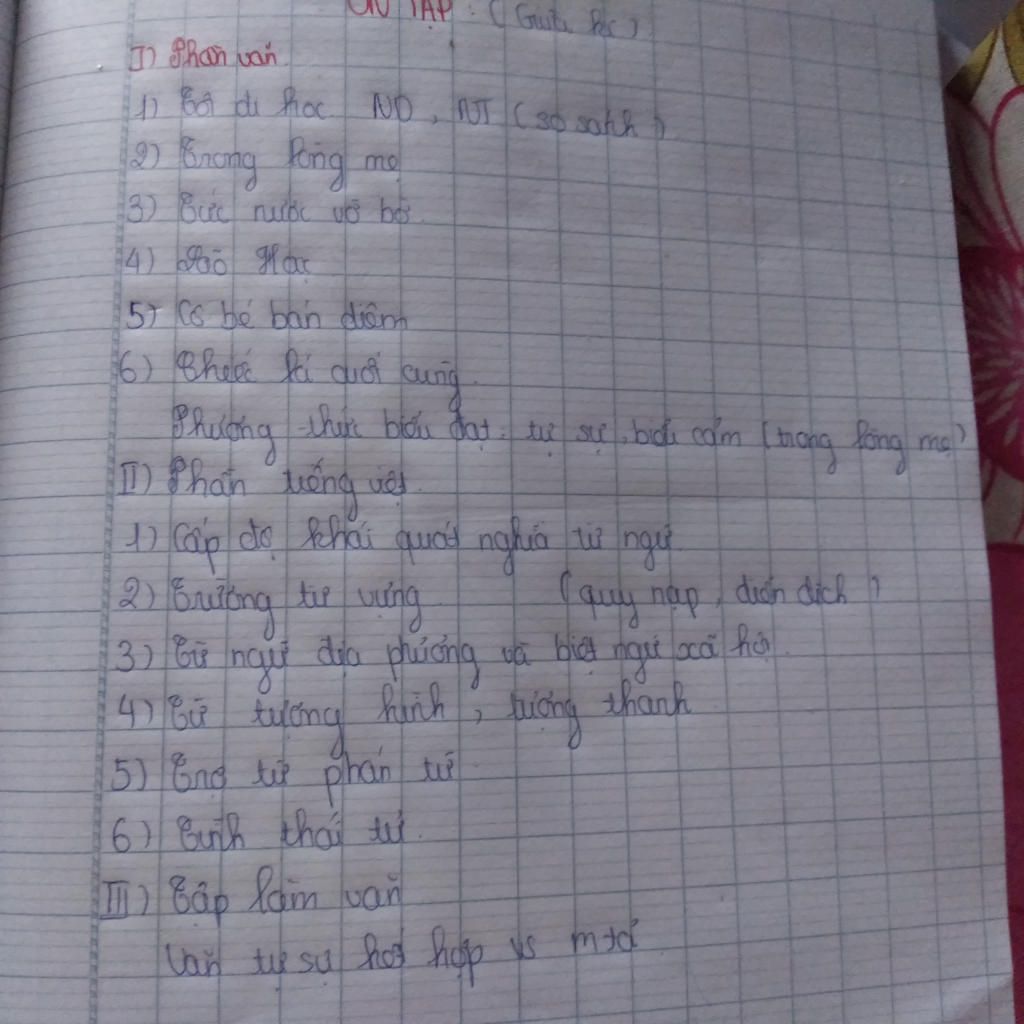 ÔN TẬP: (Giữa kì)
I) Phần văn
1) Tôi đi học ND, NT (so sánh)
2) Trong lòng mẹ
3) Tức nước vỡ bờ
4) Lão Hạc
5) Cô bé bán diêm
6) Chiếc lá cuối cùng
Phương thức biểu đạt: tự sự, biểu cảm (trong lòng mẹ)
II) Phần tiếng việt
1) Cấp độ khái quát nghĩa từ ngữ
2) Trường từ vựng (quy nạp, diễn dịch)
3) Từ ngữ địa phương và biệt ngữ xã hội
4) Từ tượng hình, tượng thanh
5) Trợ từ phán từ
6) Tình thái từ
III) Tập làm văn
Văn tự sự kết hợp vs